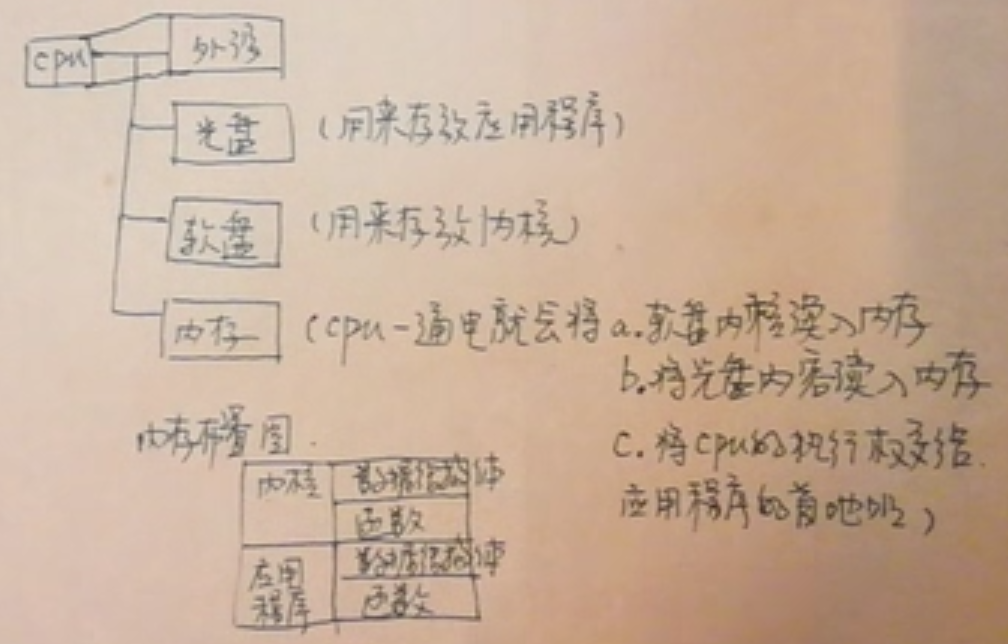 cpu
外设
光盘
(用来存放应用程序)
软盘
(用来存放内核)
内存
(cpu一通电就会将a.软盘内核读入内存
b.将光盘内容读入内存
c.将cpu的执行权交给
应用程序的首地址)
内存布置图.
内核
数据结构体
函数
应用
程序
数据结构体
函数